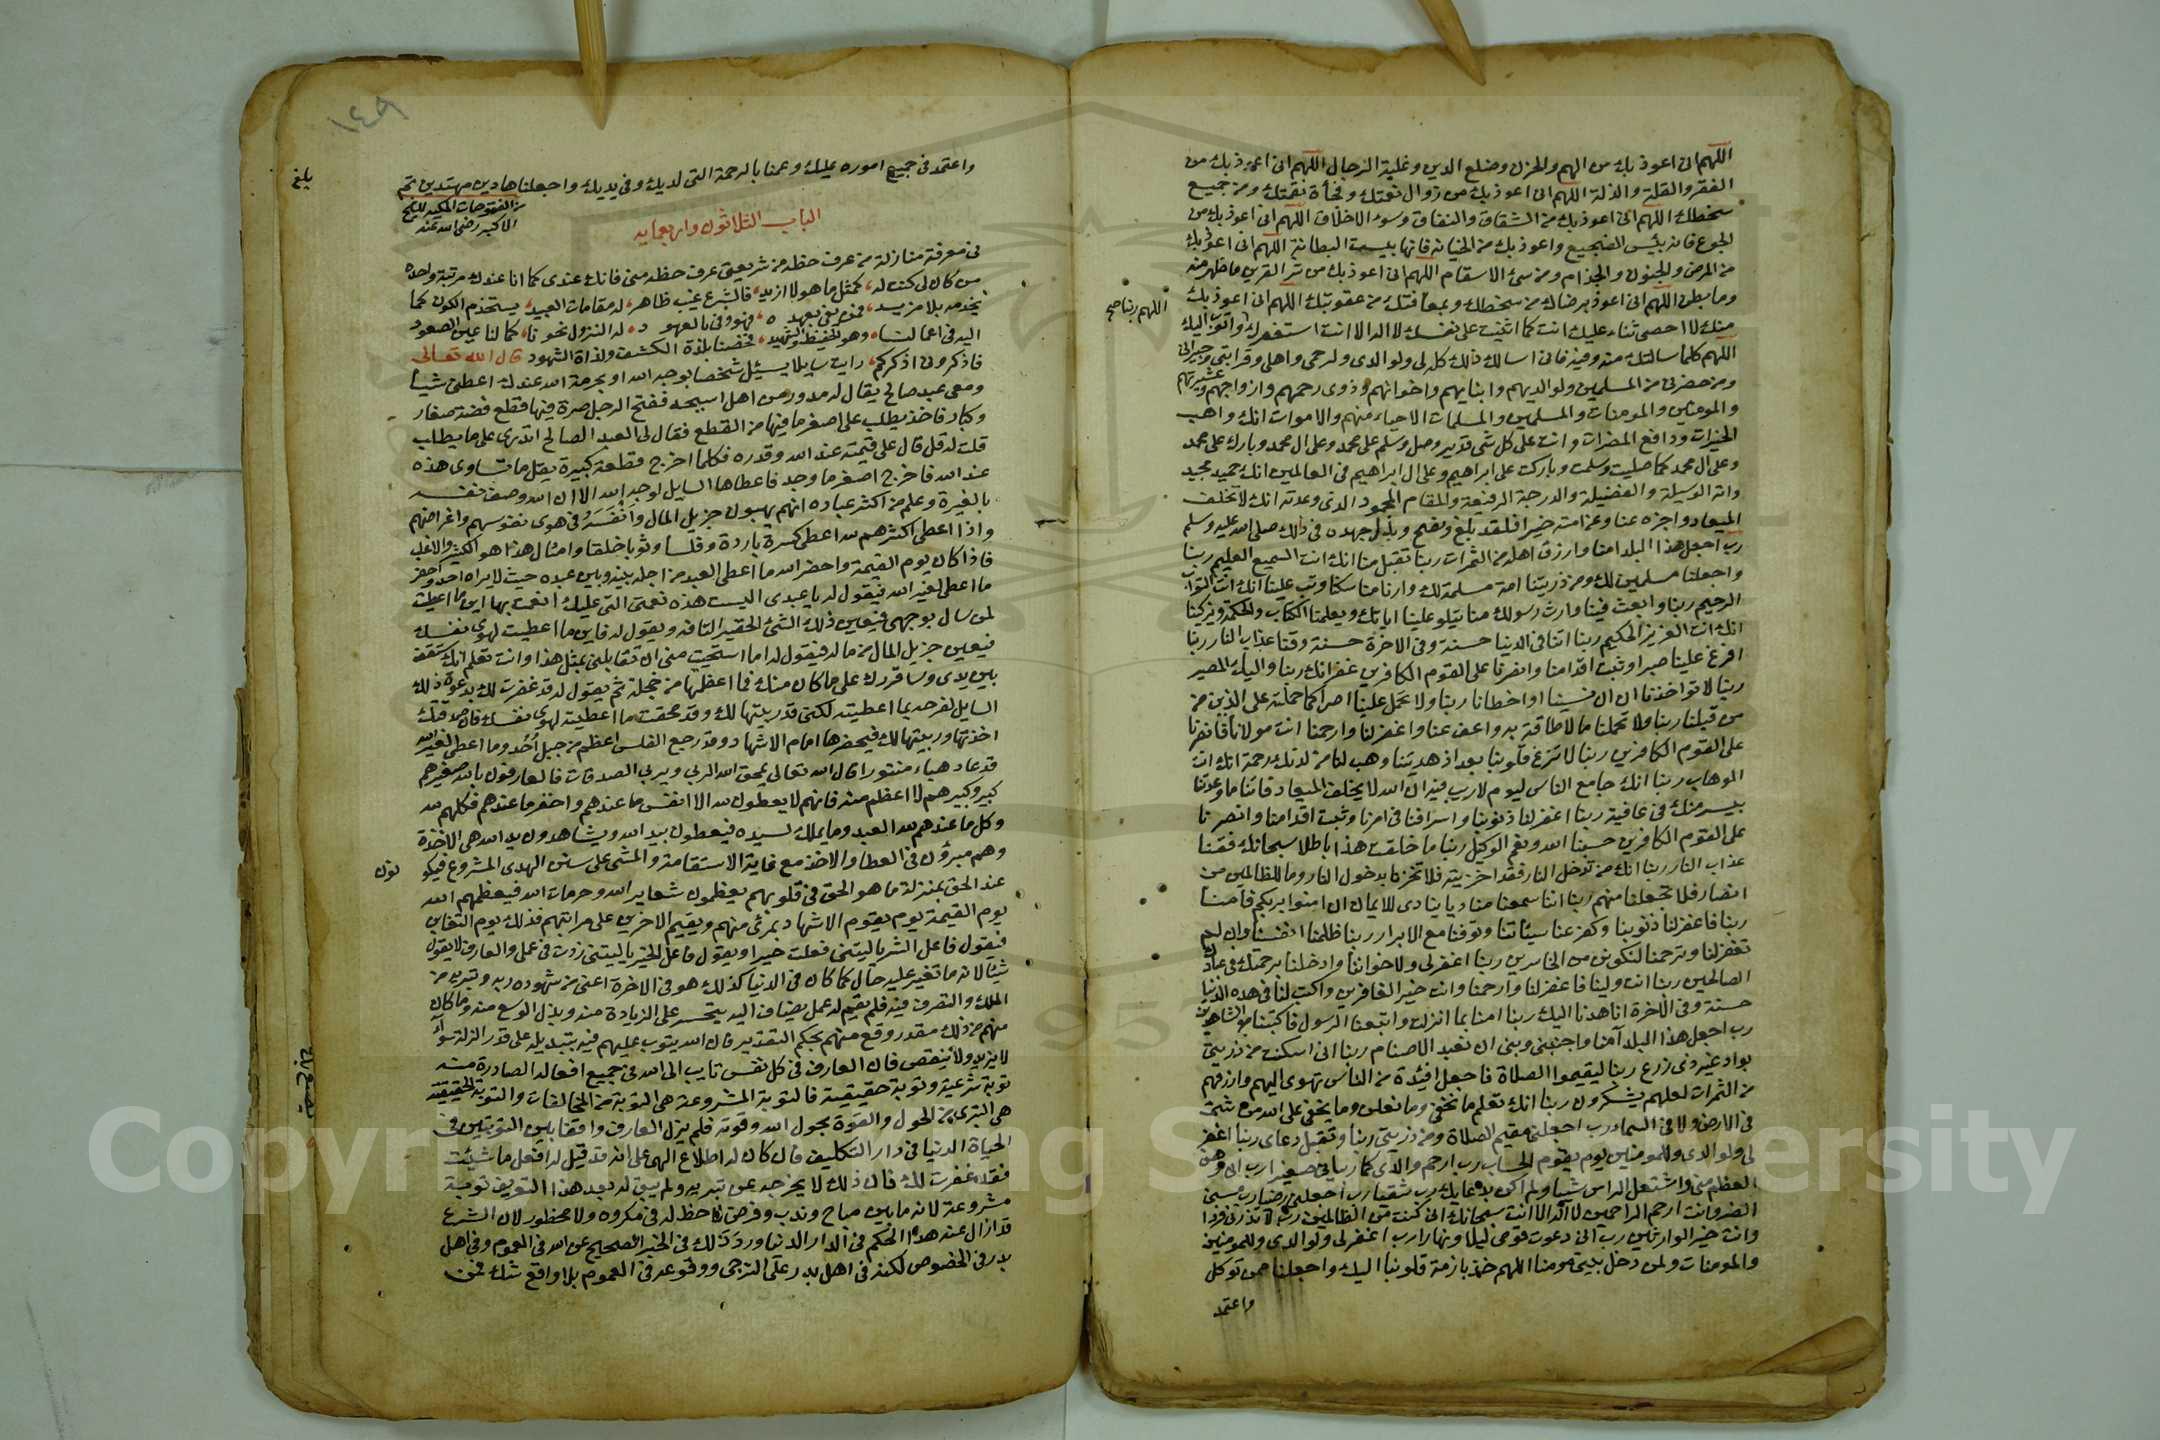 اللهم انى اعوذ بك من الهم والحزن وضلع الدين وغلبة الرجال اللهم انى اعوذ بك من
الفقر والقلة والذلة اللهم انى اعوذ بك من زوال نعمتك وفجأة نقمتك ومن جميع
سخطك اللهم انى اعوذ بك من الشقاق والنفاق وسوء الاخلاق اللهم انى اعوذ بك من
الجوع فانه بئس الضجيع واعوذ بك من الخيانة فانها بيست البطانة اللهم انى اعوذ بك
من المرض والجنون والجذام ومن سئ الاسقام اللهم انى اعوذ بك من شر القرين ما ظهر منه
وما بطن اللهم انى اعوذ برضاك من سخطك وبمعافتك من عقوبتك اللهم انى اعوذ بك
اللهم ربنا صح
منك لا احصى ثناء عليك انت كما اثنيت على نفسك لا اله الا انت استغفرك واتوب اليك
اللهم كلما سالتك منه وفيه فانى اسالك ذلك كله لى ولوالدى ولرحمى واهلى وقرابتى وجيرانى
ومن حضرنى من المسلمين ولوالديهم وابنايهم واخوانهم وذوى رحمهم وازواجهم وعشيرتهم
والمومنين والمومنات والمسلمين والمسلمات الاحياء منهم والاموات انك واهب
الخيرات ودافع المضرات وانت على كل شى قدير وصل وسلم على محمد وعلى ال محمد وبارك على محمد
وعلى ال محمد كما صليت وسلمت وباركت على ابراهيم وعلى ال ابراهيم فى العالمين انك حميد مجيد
واته الوسيلة والفضيلة والدرجة الرفيعة والمقام المحمود الذى وعدته انك لا تخلف
الميعاد واجزه عنا وعن امته خيرا فلقد بلغ ونصح وبذل جهده فى ذلك صلى الله عليه وسلم
رب اجعل هذا البلد امنا وارزق اهله من الثمرات ربنا تقبل منا انك انت السميع العليم ربنا
واجعلنا مسلمين لك ومن ذريتنا امة مسلمة لك وارنا مناسكنا وتب علينا انك انت التواب
الرحيم ربنا وابعث فينا وارث رسولك منا يتلو علينا اياتك ويعلمنا الكتاب والحكمة ويزكينا
انك انت العزيز الحكيم ربنا اتنا فى الدنيا حسنة وفى الاخرة حسنة وقنا عذاب النار ربنا
افرغ علينا صبرا وثبت اقدامنا وانصرنا على القوم الكافرين غفرانك ربنا واليك المصير
ربنا لا تواخذنا ان نسينا او اخطانا ربنا ولا تحمل علينا اصرا كما حملته على الذين من
من قبلنا ربنا ولا تحملنا ما لا طاقة به واعف عنا واغفر لنا وارحمنا انت مولانا فانصرنا
على القوم الكافرين ربنا لا تزغ قلوبنا بعد اذ هديتنا وهب لنا من لدنك رحمة انك انت
الوهاب ربنا انك جامع الناس ليوم لا ريب فيه ان الله لا يخلف الميعاد فاتنا ما وعدتنا
بيسر منك فى عافية ربنا اغفر لنا ذنوبنا واسرافنا فى امرنا وثبت اقدامنا وانصرنا
على القوم الكافرين حسبنا الله ونعم الوكيل ربنا ما خلقت هذا باطلا سبحانك فقنا
عذاب النار ربنا انك من تدخل النار فقد اخزيته فلا تخزنا بدخول النار وما للظالمين من
انصار فلا تجعلنا منهم ربنا اننا سمعنا مناديا ينادى للايمان ان امنوا بربكم فامنا
ربنا فاغفر لنا ذنوبنا وكفر عنا سيئاتنا وتوفنا مع الابرار ربنا ظلمنا انفسنا وان لم
تغفر لنا وترحمنا لنكونن من الخاسرين ربنا اغفر لى ولاخواننا وادخلنا برحمتك فى عبادك
الصالحين ربنا انت ولينا فاغفر لنا وارحمنا وانت خير الغافرين واكتب لنا فى هذه الدنيا
حسنة وفى الاخرة انا هدنا اليك ربنا امنا بما انزلت واتبعنا الرسول فاكتبنا مع الشاهدين
رب اجعل هذا البلد آمنا واجنبنى وبنى ان نعبد الاصنام ربنا انى اسكنت من ذريتى
بواد غير ذى زرع ربنا ليقيموا الصلاة فاجعل افئدة من الناس تهوى اليهم وارزقهم
من الثمرات لعلهم يشكرون ربنا انك تعلم ما نخفى وما نعلن وما يخفى على الله من شئ
فى الارض ولا فى السما رب اجعلنى مقيم الصلاة ومن ذريتى ربنا وتقبل دعاى ربنا اغفر
لى ولوالدى وللمومنين يوم يقوم الحساب رب ارحم والدى كما ربيانى صغيرا رب انى وهن
العظم منى واشتعل الراس شيبا ولم اكن بدعايك رب شقيا رب اجعلنى رضيا رب مسنى
الضر وانت ارحم الراحمين لا اله الا انت سبحانك انى كنت من الظالمين رب لا تذرنى فردا
وانت خير الوارثين رب انى دعوت قومى ليلا ونهارا رب اغفر لى ولوالدى وللمومنين
والمومنات ولمن دخل بيتى مومنا اللهم خذ بازمة قلوبنا اليك واجعلنا ممن توكل
واعتمد
١٤٩
واعتمد فى جميع اموره عليك وعمنا بالرحمة التى لديك وفى يديك واجعلنا هادين مهتدين تم
بلغ
من الفتوحات المكيه للشيخ
الاكبر رضى الله عنه
الباب الثلاثون واربعمايه
فى معرفة منازلة من عرف حظه من شريعتى عرف حظه منى فانك عندى كما انا عندك مرتبة واحدة
من كان لى كنت له، كمثل ما هو لا ازيد، فالشرع غيب ظاهر، له مقامات العبيد، يستخدم الكون كما
يخدمه بلا مزيد، فمن يفى بعهده، فهو وفى بالعهود، له النزول نحونا، كما لنا عين الصعود
اليه فى اعمالنا، وهو الحفيظ والشهيد، فخصنا بلذة الكشف ولذاة الشهود قال الله تعالى
فاذكرونى اذكركم، رايت سايلا يسئل شخصا بوجه الله او بحرمة الله عندك اعطنى شيا
ومعى عبد صالح يقال له مدور من اهل اسبجه ففتح الرجل صرة فيها قطع فضة صغار
وكبار فاخذ يطلب على اصغر ما فيها من القطع فقال لى العبد الصالح اتدرى على ما يطلب
قلت له قل قال على قيمته عند الله وقدره فكلما اخرج قطعة كبيرة يقل ما تساوى هذه
عند الله فاخرج اصغر ما وجد فاعطاها السايل لوجه الله الا ان الله وصف نفسه
بالغيرة وعلم من اكثر عباده انهم يهبون جزيل المال وانفسه فى هوى نفوسهم واغراضهم
واذا اعطى اكثرهم لله اعطى كسرة باردة وفلسا وثوبا خلقا وامثال هذا هو الكثير والاغلب
فاذا كان يوم القيمة واحضر الله ما اعطى العبد من اجله بينه وبين عبده حيث لا يراه احد واحضر
ما اعطى لغير الله فيقول له يا عبدى اليست هذه نعمتى التى عليك انعمت بها اين ما اعطيت
لمن سال بوجهى فيعين ذلك الشئ الحقير التافه ويقول له فاين ما اعطيت لهوى نفسك
فيعين جزيل المال من ماله فيقول له اما استحيت منى ان تقابلنى بمثل هذا وانت تعلم انك ستقف
بين يدى وساقررك على ما كان منك فما اعظمها من خجلة ثم يقول له قد غفرت لك بدعوة ذلك
السايل لفرحه بما اعطيته لكنى قد ربيتها لك وقد محقت ما اعطيته لهوى نفسك فان صدقتك
اخذتها وربيتها لك فيحضرها امام الاشهاد وقد رجع الفلس اعظم من جبل أحد وما اعطى لغير الله
قد عاد هباء منثورا قال الله تعالى يمحق الله الربى ويربى الصدقات فالعارفون بالله صغيرهم
كبير وكبيرهم لا اعظم منه فانهم لا يعطون لله الا انفس ما عندهم واحقر ما عندهم فكلهم لله
وكل ما عندهم لله العبد وما يملك لسيده فيعطون بيد الله ويشاهدون يد الله هى الاخذة
وهم مبرؤن فى العطا والاخذ مع غاية الاستقامة والمشى على سنن الهدى المشروع فيكو
نون
عند الحق بمنزلة ما هو الحق فى قلوبهم يعظمون شعاير الله وحرمات الله فيعظمهم الله
يوم القيمة يوم يقوم الاشهاد بمرئى منهم ويقيم الاخرين على مراتبهم فذلك يوم التغابن
فيقول فاعل الشر يا ليتنى فعلت خيرا ويقول فاعل الخير يا ليتنى زدت فى عمل والعارف لا يقول
شيا لانه ما تغير عليه حال كما كان فى الدنيا كذلك هو فى الاخرة اعنى من شهوده ربه وتبريه من
الملك والتصرف فيه فلم يقم له عمل يضاف اليه يتحسر على الزيادة منه وبذل الوسع منه وما كان
منهم من ذلك مقدر وقع منهم بحكم التقدير فان الله يتوب عليهم فيه بتبديله على قدر الزلة سوآ
لا يزيد ولا ينقص فان العارف فى كل نفس تايب الى الله فى جميع افعاله الصادرة منه
توبة شرعية وتوبة حقيقية فالتوبة المشروعة هى التوبة من المخالفات والتوبة الحقيقية
هى التبرى من الحول والقوة بحول الله وقوته فلم يزل العارف واقفا بين التوبتين فى
الحياة الدنيا فى دار التكليف فان كان له اطلاع الهى على انه قد قيل له افعل ما شيت
فقد غفرت لك فان ذلك لا يخرجه عن تبريه ولم يبق له بعد هذا التعريف توبة
مشروعة لانه ما بين مباح وندب وفرض لا حظ له فى مكروه ولا محظور لان الشرع
قد ازال عنه هذا الحكم فى الدار الدنيا ورد ذلك فى الخبر الصحيح عن الله فى العموم وفى اهل
بدر فى الخصوص لكنه فى اهل بدر على الترجى ووقوعه فى العموم بلا واقع شك فمن
Copyright © King Saud University